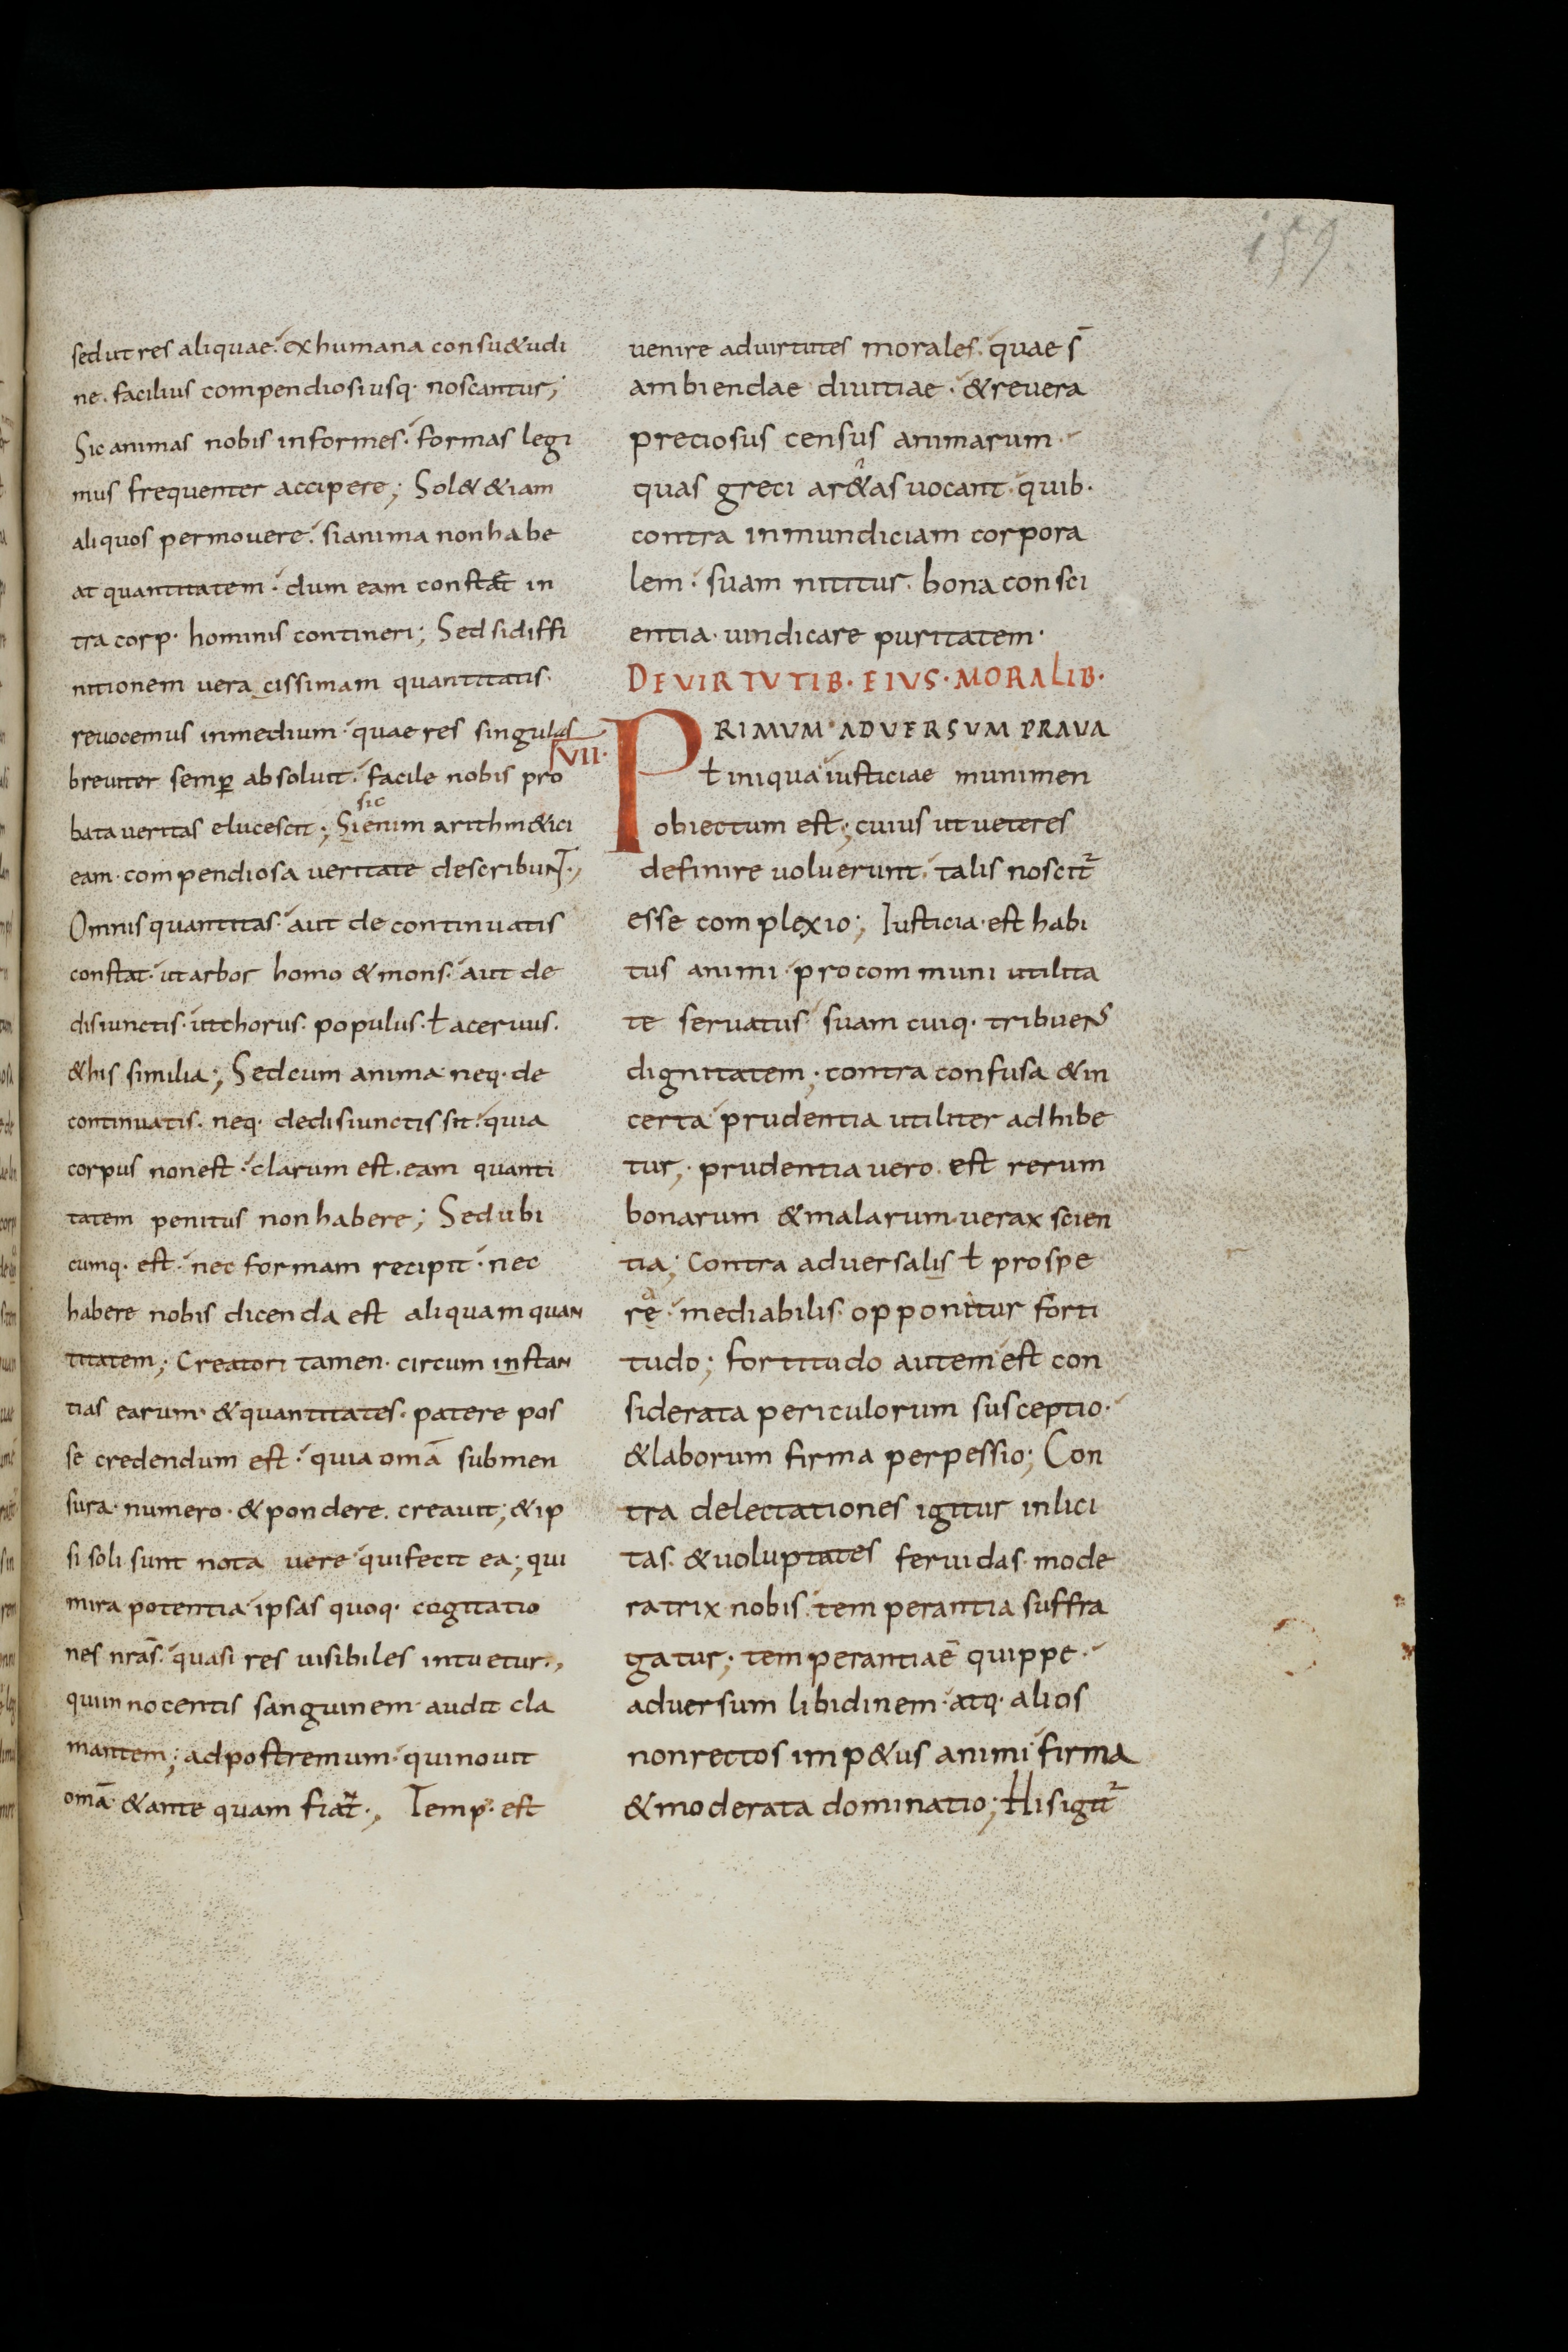 159
sed ut res aliquae. ex humana consu&udi
ne. facilius compendiosiusq· noscantur;
Sic animas nobis informes. formas legi
mus frequenter accipere; Sol& &iam
aliquos permovere. si anima non habe
at quantitatem. dum eam constat in
tra corp· hominis contineri; Sed si diffi
nitionem veracissimam quantitatis.
revocemus in medium. quae res singulas
breviter semp̄ absoluit. facile nobis pro
bata veritas elucescit; Si enim arithm&ici
sic
eam· compendiosa veritate describunt.,
Omnis quantitas. aut de continuatis
constat. ut arbor homo & mons. aut de
disiunctis. ut chorus. populus. ł acervus.
& his similia; Sed cum anima neq· de
continuatis. neq· de disiunctis sit. quia
corpus non est. clarum est. eam quanti
tatem penitus non habere; Sed ubi
cumq· est. nec formam recipit. nec
habere nobis dicenda est aliquam quan
titatem; Creatori tamen. circum instan
tias earum. & quantitates. patere pos
se credendum est. quia omā sub men
sura. numero. & pondere. creavit; & ip
si soli sunt nota vere qui fecit ea; qui
mira potentia ipsas quoq· cogitatio
nes nrās. quasi res visibiles intuetur.,
qui innocentis sanguinem audit cla
mantem; ad postremum. qui novit
omā & ante quam fiat̄., Temp· est
venire ad virtutes morales. quae s̄
ambiendae divitiae. & revera
preciosus census animarum.
quas greci ar&as vocant. quib·
contra inmundiciam corpora
lem. suam nititur. bona consci
entia. vindicare puritatem.
DE VIRTUTIB· EIUS· MORALIB·
VII·
PRIMUM ADVERSUM PRAVA
ł iniqua iusticiae munimen
obiectum est; cuius ut veteres
definire voluerunt. talis noscit̄
esse complexio; Iusticia. est habi
tus animi. pro communi utilita
te servatus suam cuiq· tribuens
dignitatem; contra confusa & in
certa prudentia utiliter adhibe
tur; prudentia vero. est rerum
bonarum & malarum. verax scien
tia; Contra adversalis ł prospe
rę. mediabilis. opponitur forti
tudo; fortitudo autem est con
siderata periculorum susceptio.
& laborum firma perpessio; Con
tra delectationes igitur inlici
tas. & voluptates fervidas. mode
ratrix nobis temperantia suffra
gatur; temperantiae quippe.
adversum libidinem. atq· alios
non rectos imp&us animi firma
& moderata dominatio; His igit̄